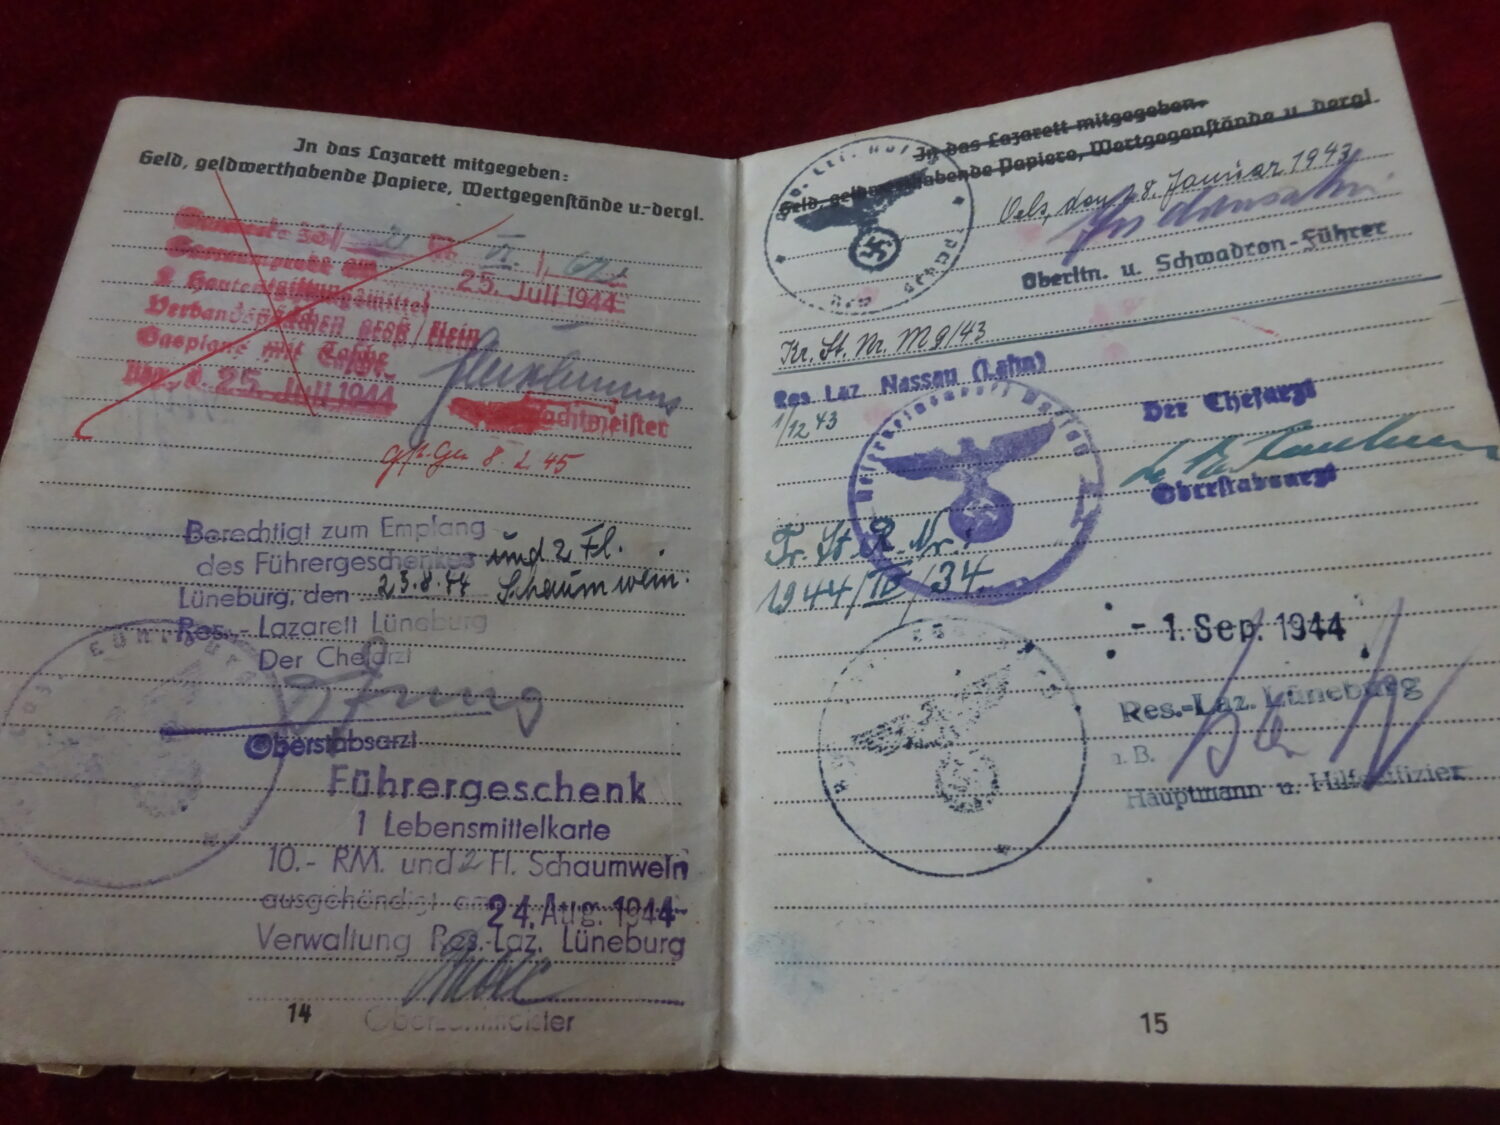 In das Lazarett mitgegeben:
Geld, geldwerthabende Papiere, Wertgegenstände u. dergl.
25. Juli 1944
2 Hautentgiftungsmittel
Verbandpäckchen groß/klein
Gasplane mit Tasche
25. Juli 1944
achtmeister
8. 2. 45
Berechtigt zum Empfang
des Führergeschenkes und 2 Fl.
Lüneburg, den 23.8.44 Schaumwein.
Res.- Lazarett Lüneburg
Der Chefarzt
Oberstabsarzt
Führergeschenk
1 Lebensmittelkarte
10.- RM. und 2 Fl. Schaumwein
ausgehändigt am 24. Aug. 1944
Verwaltung Res.-Laz. Lüneburg
Oberzahlmeister
14
In das Lazarett mitgegeben.
Geld, geldwerthabende Papiere, Wertgegenstände u. dergl.
Oels, den 28. Januar 1943
Oberltn. u. Schwadron-Führer
Kr. St. Nr. M 9/43
Res Laz Nassau (Lahn)
1/12 43
Der Chefarzt
Oberstabsarzt
Tr. St. R. Nr.
1944/IV/34.
- 1. Sep. 1944
Res.-Laz. Lüneburg
Hauptmann u. Hilfsoffizier
15